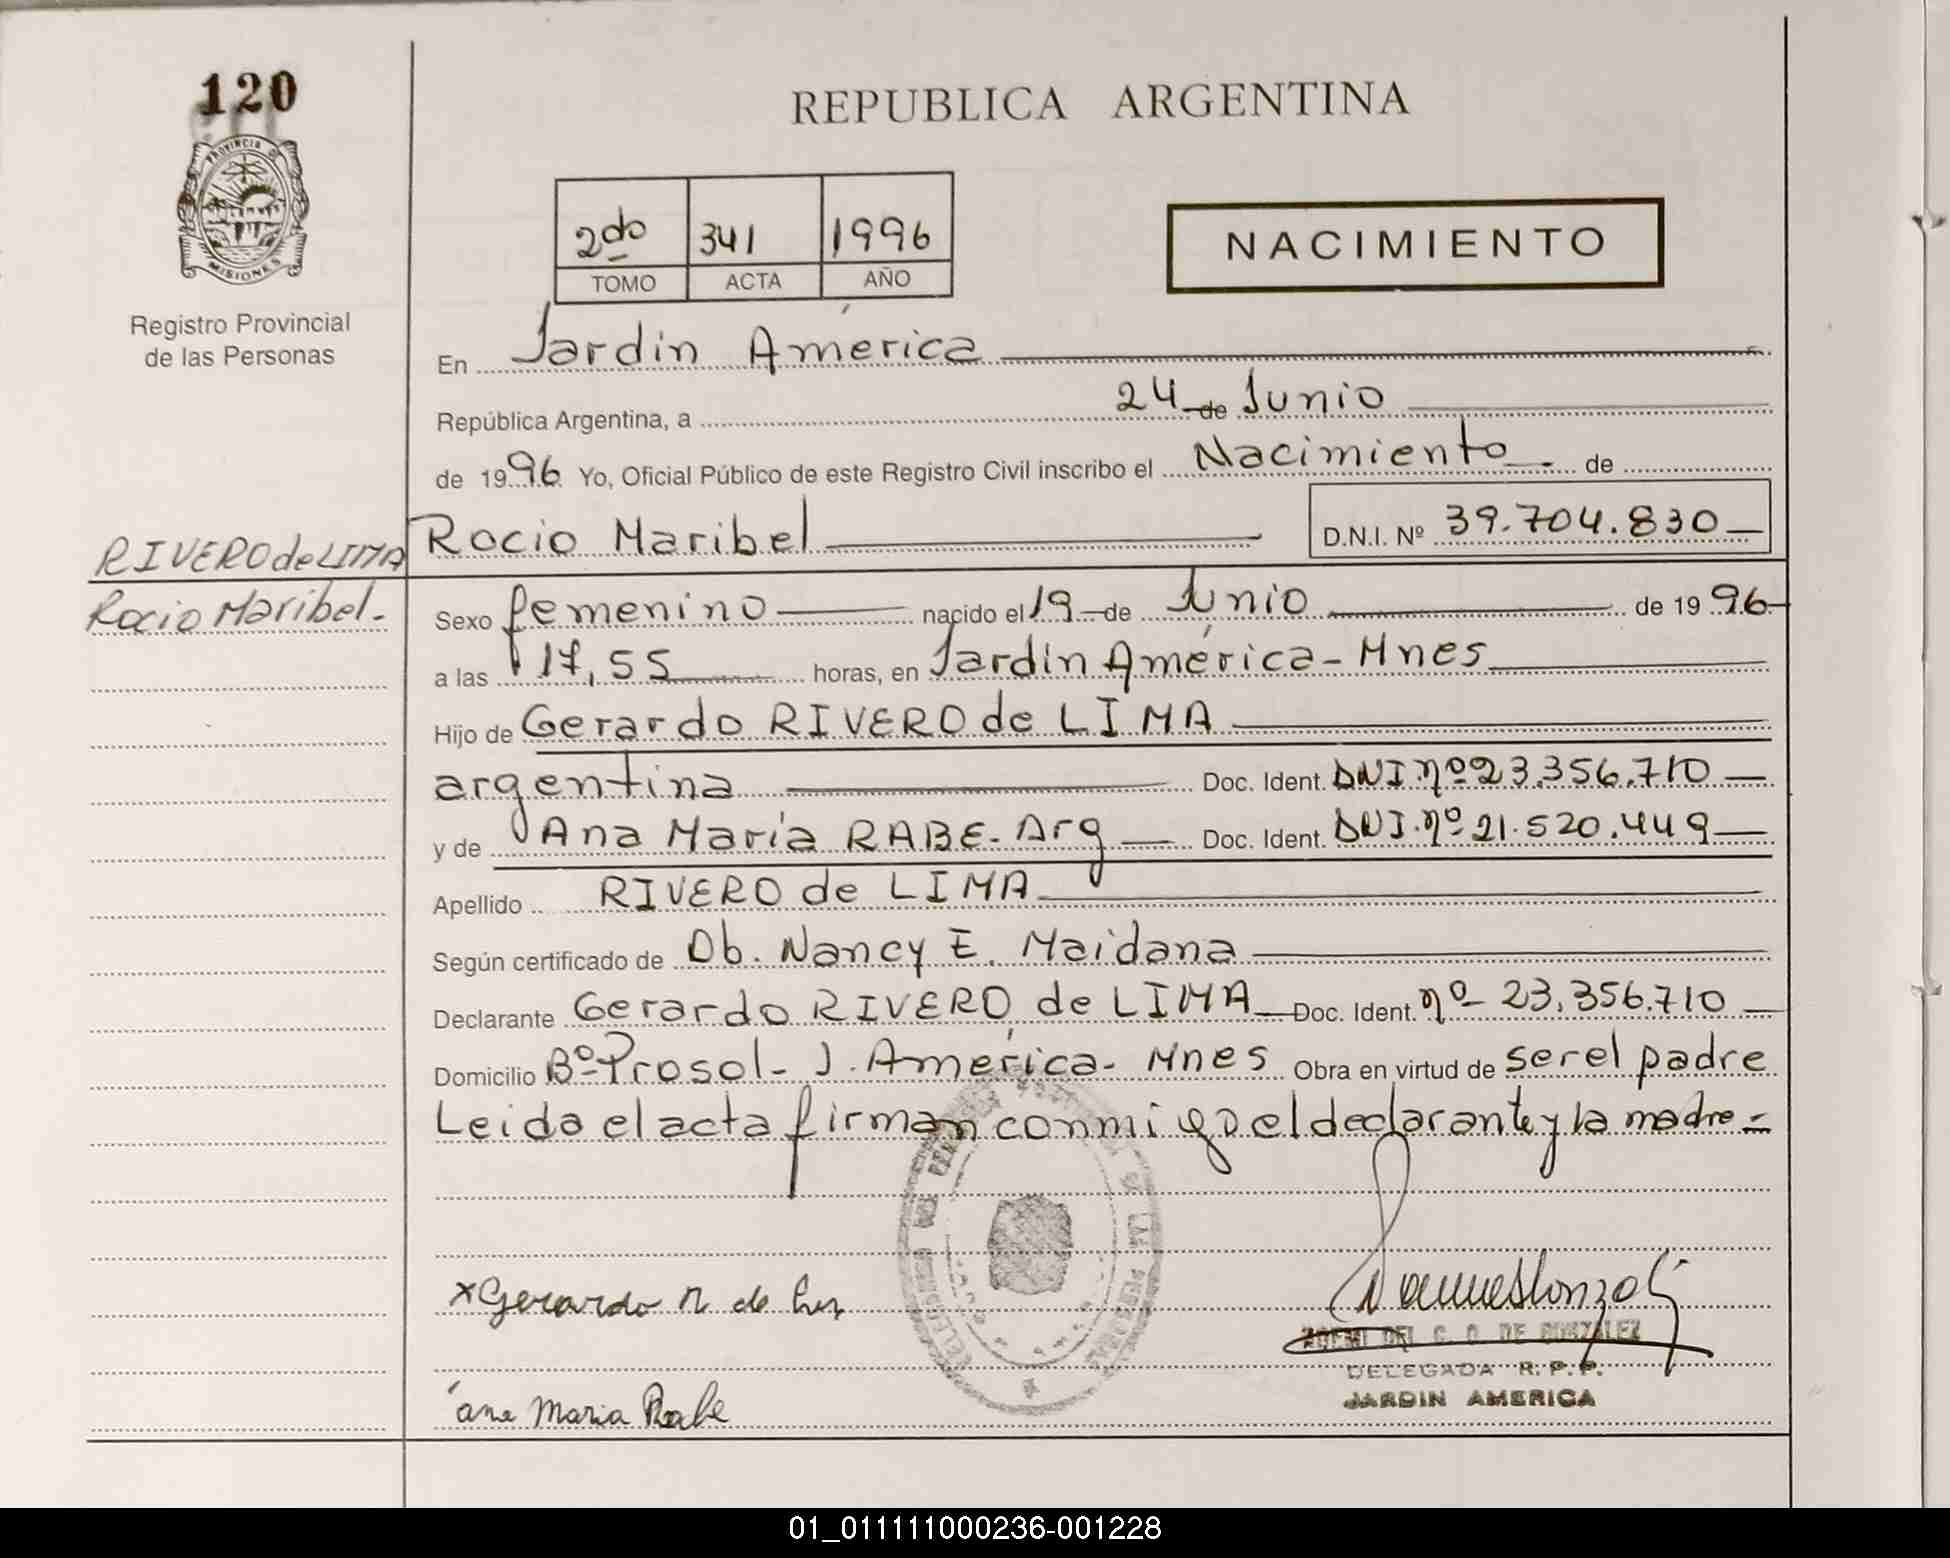 120
PROVINCIA DE
MISIONES
Registro Provincial
de las Personas
REPUBLICA ARGENTINA
2do 341 1996
TOMO ACTA AÑO
NACIMIENTO
En Jardín América
República Argentina, a 24 de Junio
de 1996 Yo, Oficial Público de este Registro Civil inscribo el Nacimiento de
RIVERO de LIMA
Rocio Maribel.-
Rocio Maribel D.N.I. Nº 39.704.830
Sexo femenino nacido el 19 de Junio de 1996
a las 17,55 horas, en Jardín América - Mnes
Hijo de Gerardo RIVERO de LIMA
argentina Doc. Ident. DNI.nº 23.356.710
y de Ana María RABE. Arg Doc. Ident. DNI.nº 21.520.449
Apellido RIVERO de LIMA
Según certificado de Ob. Nancy E. Maidana
Declarante Gerardo RIVERO de LIMA Doc. Ident. nº 23.356.710
Domicilio Bº Prosol - J. América - Mnes Obra en virtud de ser el padre
Leida el acta firman conmigo el declarante y la madre =
x Gerardo R de
ana Maria Rabe
DEL C. O. DE GONZALEZ
DELEGADA R.P.P.
JARDIN AMERICA
01_011111000236-001228